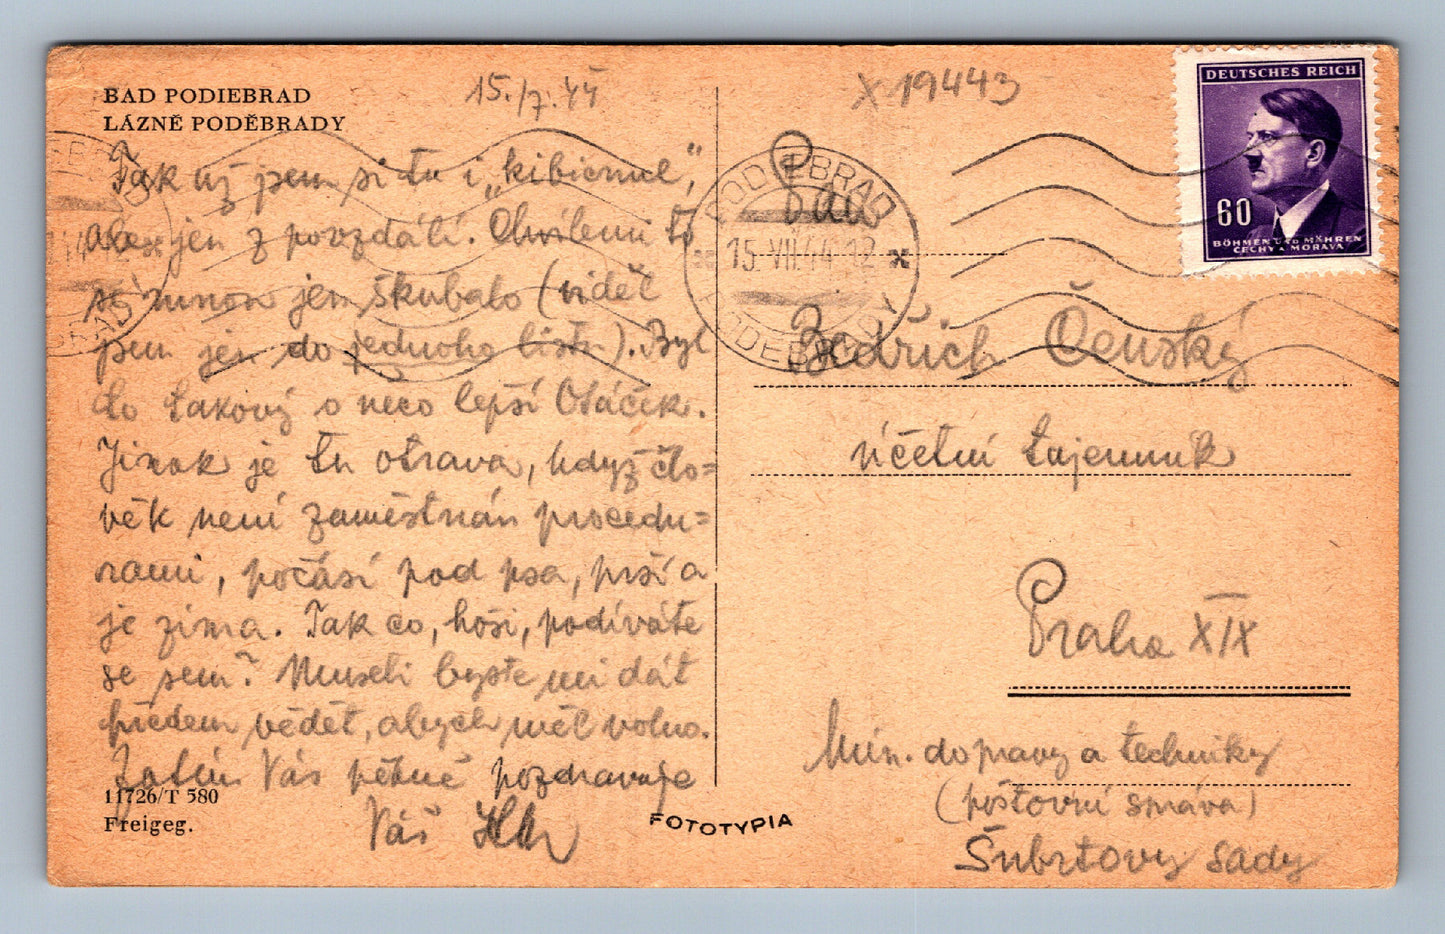 BAD PODIEBRAD
LÁZNĚ PODĚBRADY
15./7.44
Tak už jsem si tu i „kibicoval“,
ale jen z povzdálí. Chvílemi to
se mnou jen škubalo (viděl
jsem jen do jednoho listu). Byl
to takový o něco lepší Otáček.
Jinak je tu otrava, když člo=
věk není zaměstnán procedu=
rami, počasí pod psa, prší a
je zima. Tak co, hoši, podíváte
se sem? Museli byste mi dát
předem vědět, abych měl volno.
Zatím Vás pěkně pozdravuje
Váš
11726/T 580
Freigeg.
FOTOTYPIA
X 19443
PODIEBRAD
15.VII.44-12
PODĚBRADY
DEUTSCHES REICH
60
BÖHMEN UND MÄHREN
ČECHY A MORAVA
Bedřich Čenský
účetní tajemník
Praha XIX
Min. dopravy a techniky
(poštovní správa)
Šubrtovy sady